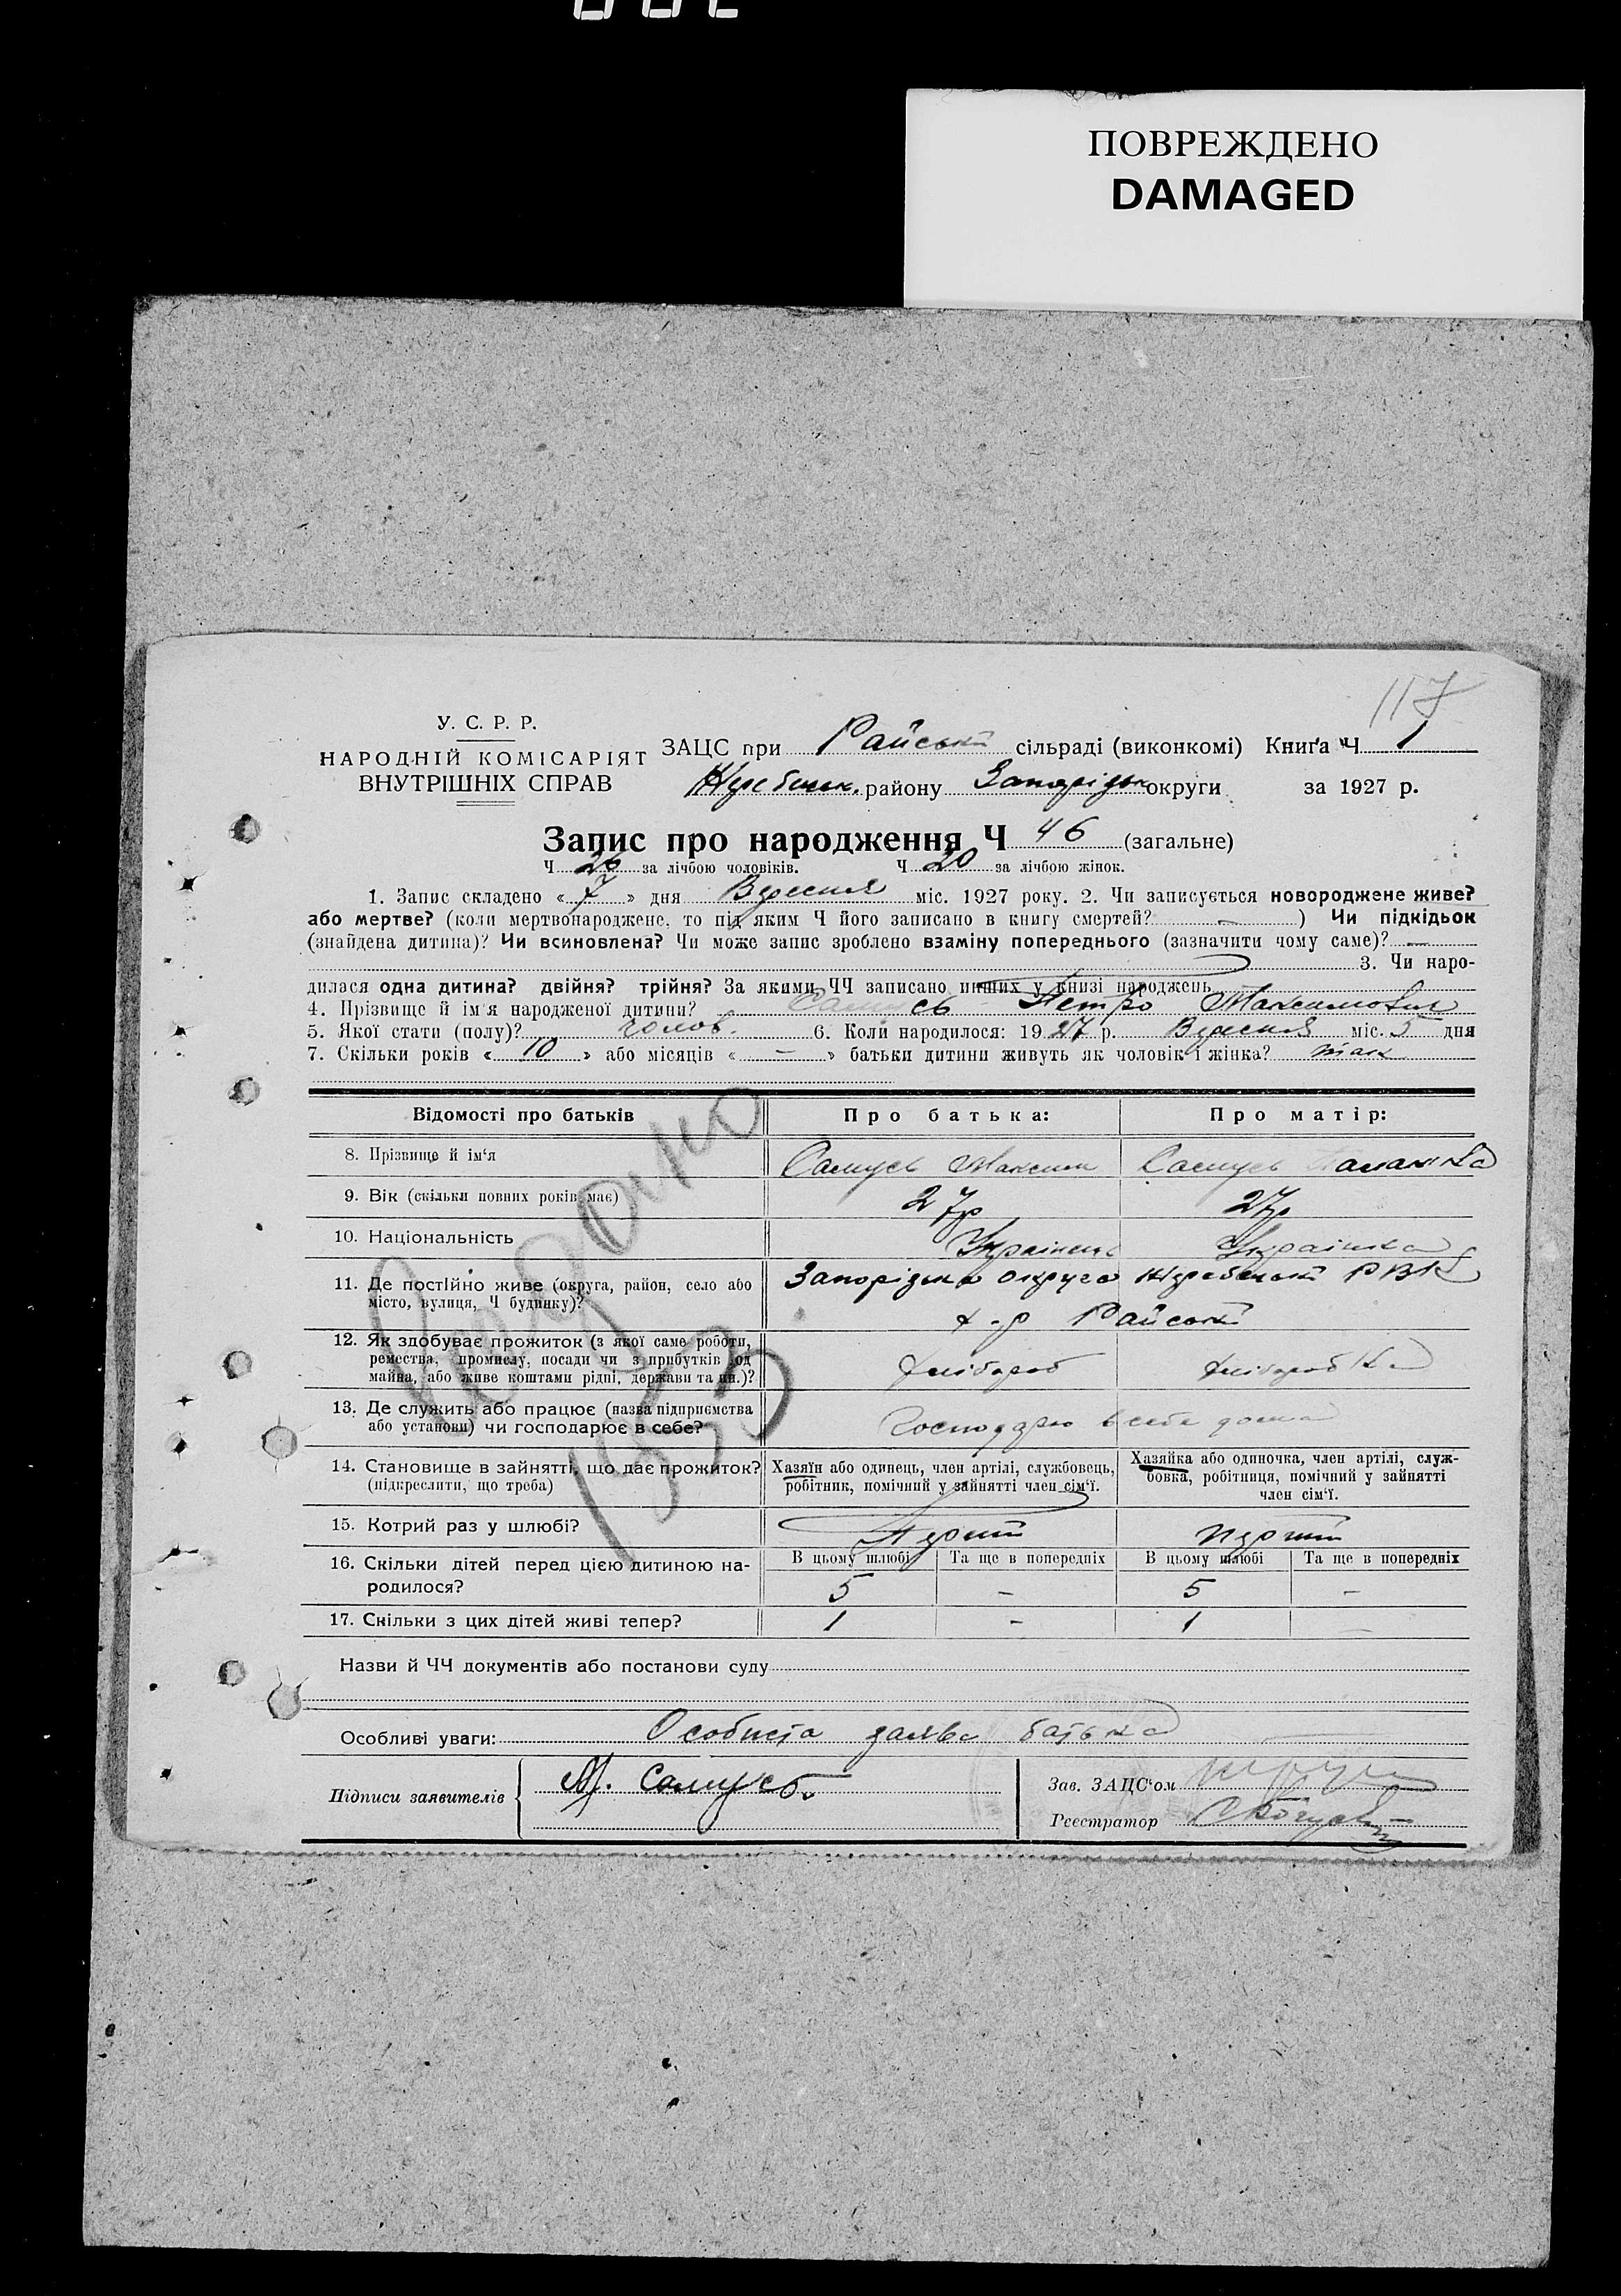 ПОВРЕЖДЕНО
DAMAGED
117
У. С. Р. Р.
НАРОДНІЙ КОМІСАРІЯТ
ВНУТРІШНІХ СПРАВ
ЗАЦС при Райській сільраді (виконкомі) Книґа Ч 1
Жеребецьк. району Запорізьк округи за 1927 р.
Запис про народження Ч 46 (загальне)
Ч 26 за лічбою чоловіків. Ч 20 за лічбою жінок.
1. Запис складено « 7 » дня Вересня міс. 1927 року. 2. Чи записується новороджене живе?
або мертве? (коли мертвонароджене, то під яким Ч його записано в книгу смертей? — ) Чи підкідьок
(знайдена дитина)? Чи всиновлена? Чи може запис зроблено взаміну попереднього (зазначити чому саме)? —
3. Чи наро-
дилася одна дитина? двійня? трійня? За якими ЧЧ записано инших у книзі народжень
4. Прізвище й ім'я народженої дитини? Самусь Петро Максимович
5. Якої стати (полу)? чолов. 6. Коли народилося: 1927 р. Вересня міс. 5 дня
7. Скільки років « 10 » або місяців « — » батьки дитини живуть як чоловік і жінка? так
Відомості про батьків Про батька: Про матір:
8. Прізвище й ім'я Самусь Максим Самусь Паланка
9. Вік (скільки повних років має) 27р 27р
10. Національність Українець Українка
11. Де постійно живе (округа, район, село або Запорізька округа Жеребецький РВК
місто, вулиця, Ч будинку)? х-р Райський
12. Як здобуває прожиток (з якої саме роботи,
ремества, промислу, посади чи з прибутків од Хлібороб Хліборобка
майна, або живе коштами рідні, держави та ин.)?
13. Де служить або працює (назва підприємства
або установи) чи господарює в себе? Господарює в себе дома
14. Становище в зайнятті, що дає прожиток? Хазяїн або одинець, член артілі, службовець, Хазяйка або одиночка, член артілі, служ-
(підкреслити, що треба) робітник, помічний у зайнятті член сім'ї. бовка, робітниця, помічний у зайнятті
член сім'ї.
15. Котрий раз у шлюбі? Перший Перший
16. Скільки дітей перед цією дитиною на- В цьому шлюбі Та ще в попередніх В цьому шлюбі Та ще в попередніх
родилося? 5 — 5 —
17. Скільки з цих дітей живі тепер? 1 — 1 —
Назви й ЧЧ документів або постанови суду
Особливі уваги: Особиста заява батька
Підписи заявителів М. Самусь.
Зав. ЗАЦС'ом
Реєстратор